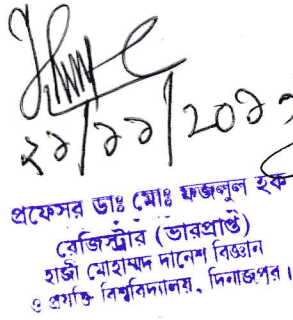 ২১/১১/২০১
প্রফেসর ডাঃ মোঃ ফজলুল হক
রেজিস্ট্রার (ভারপ্রাপ্ত)
হাজী মোহাম্মদ দানেশ বিজ্ঞান
ও প্রযুক্তি বিশ্ববিদ্যালয়, দিনাজপুর।